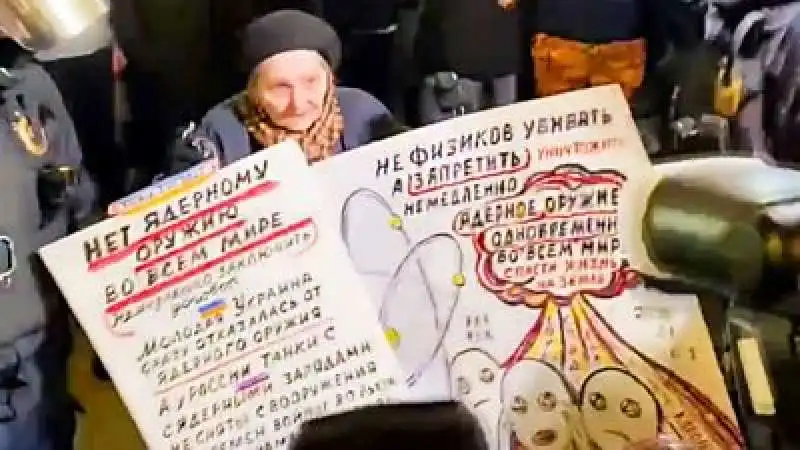 НЕТ ЯДЕРНОМУ
ОРУЖИЮ
ВО ВСЕМ МИРЕ
ЗАКЛЮЧИТЬ
МОЛОДАЯ УКРАИНА
СРАЗУ ОТКАЗАЛАСЬ ОТ
ЯДЕРНОГО ОРУЖИЯ
А У РОССИИ ТАНКИ С
ЯДЕРНЫМИ ЗАРЯДАМИ
НЕ СНЯТЫ С ВООРУЖЕНИЯ
НЕ ФИЗИКОВ УБИВАТЬ
А ЗАПРЕТИТЬ УНИЧТОЖИТЬ
НЕМЕДЛЕННО
ЯДЕРНОЕ ОРУЖИЕ
ОДНОВРЕМЕННО
ВО ВСЕМ МИРЕ
СПАСТИ ЖИЗНЬ
НА ЗЕМЛЕ